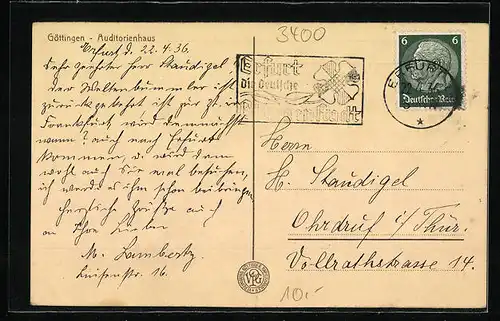 Göttingen - Auditorienhaus
3400
Erfurt d. 22.4.36
Sehr geehrter Herr Staudigel!
der Weltenbummler ist
zurückgekehrt ist zur Zt. in
Frankfurt, wird demnächst
wann? auch nach Erfurt
kommen, u. wird dann
wohl auch Sie mal besuchen,
ich werde es ihm schon beibringen
Herzliche Grüße auch
an Ihre Lieben
M. Lambertz
Luisenstr. 16.
Erfurt
die deutsche
Blumenstadt
ERFURT
6 6
Deutsches Reich
Herrn
H. Staudigel
Ohrdruf i/Thür.
Vollrathstrasse 14.
10.-